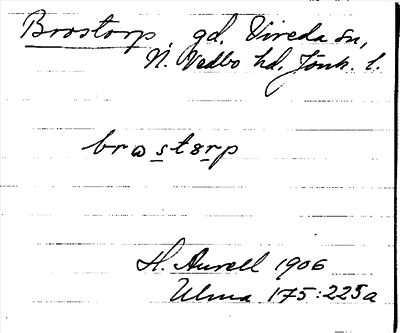 Brostorp, gd. Vireda sn,
N. Vedbo hd, Jönk. l.
brɷstɞrp
H. Aurell 1906
Ulma 175:225a